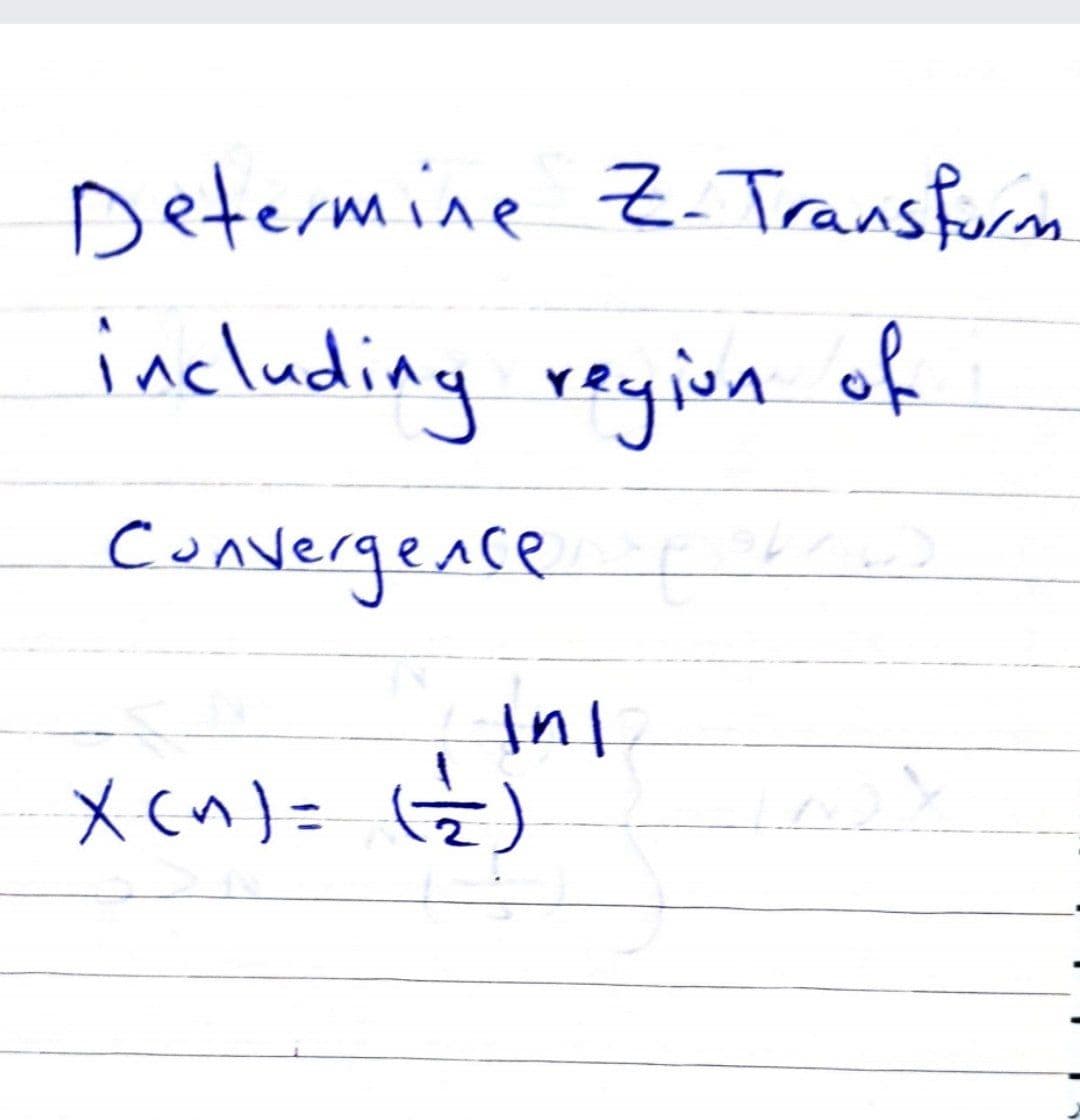 Determine Z-Transform
including region of
Convergence
x(n) = (1/2)^|n|